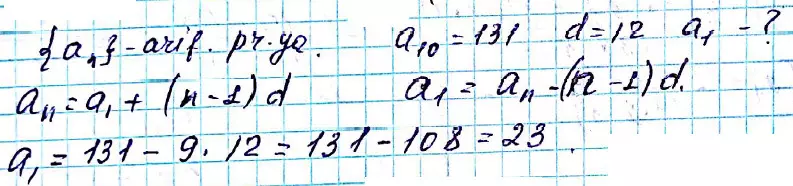 {aₙ} - arif. pr-ya. a₁₀ = 131 d = 12 a₁ - ?
aₙ = a₁ + (n - 1) d a₁ = aₙ - (n - 1) d.
a₁ = 131 - 9 · 12 = 131 - 108 = 23.